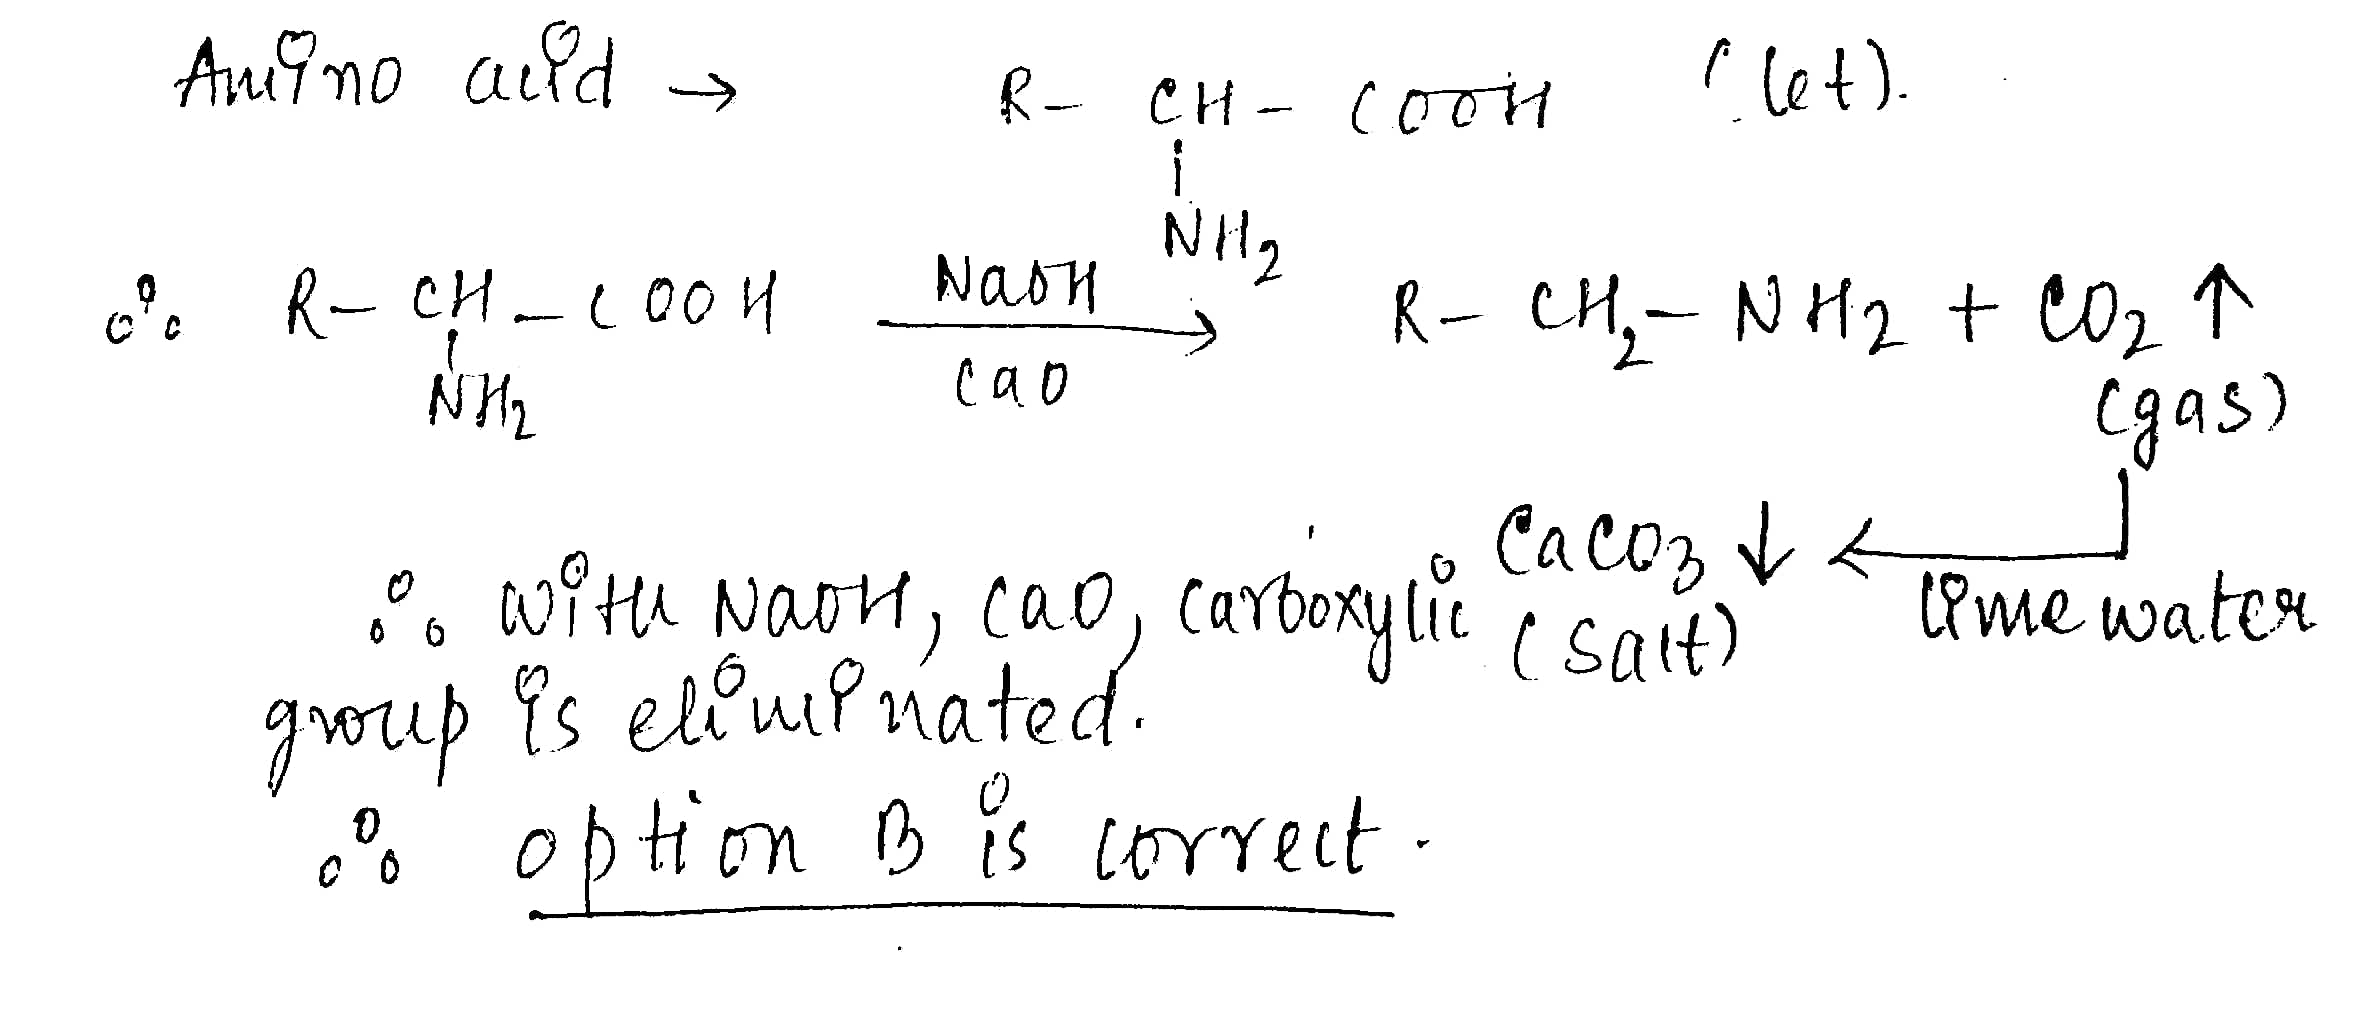 Amino acid → R- CH - COOH (let).
NH2
∴ R- CH - COOH NaOH → R- CH2 - NH2 + CO2 ↑
NH2 CaO (gas)
CaCO3 ↓ ← lime water
(salt)
∴ with NaOH, CaO, carboxylic
group is eliminated.
∴ option B is correct.